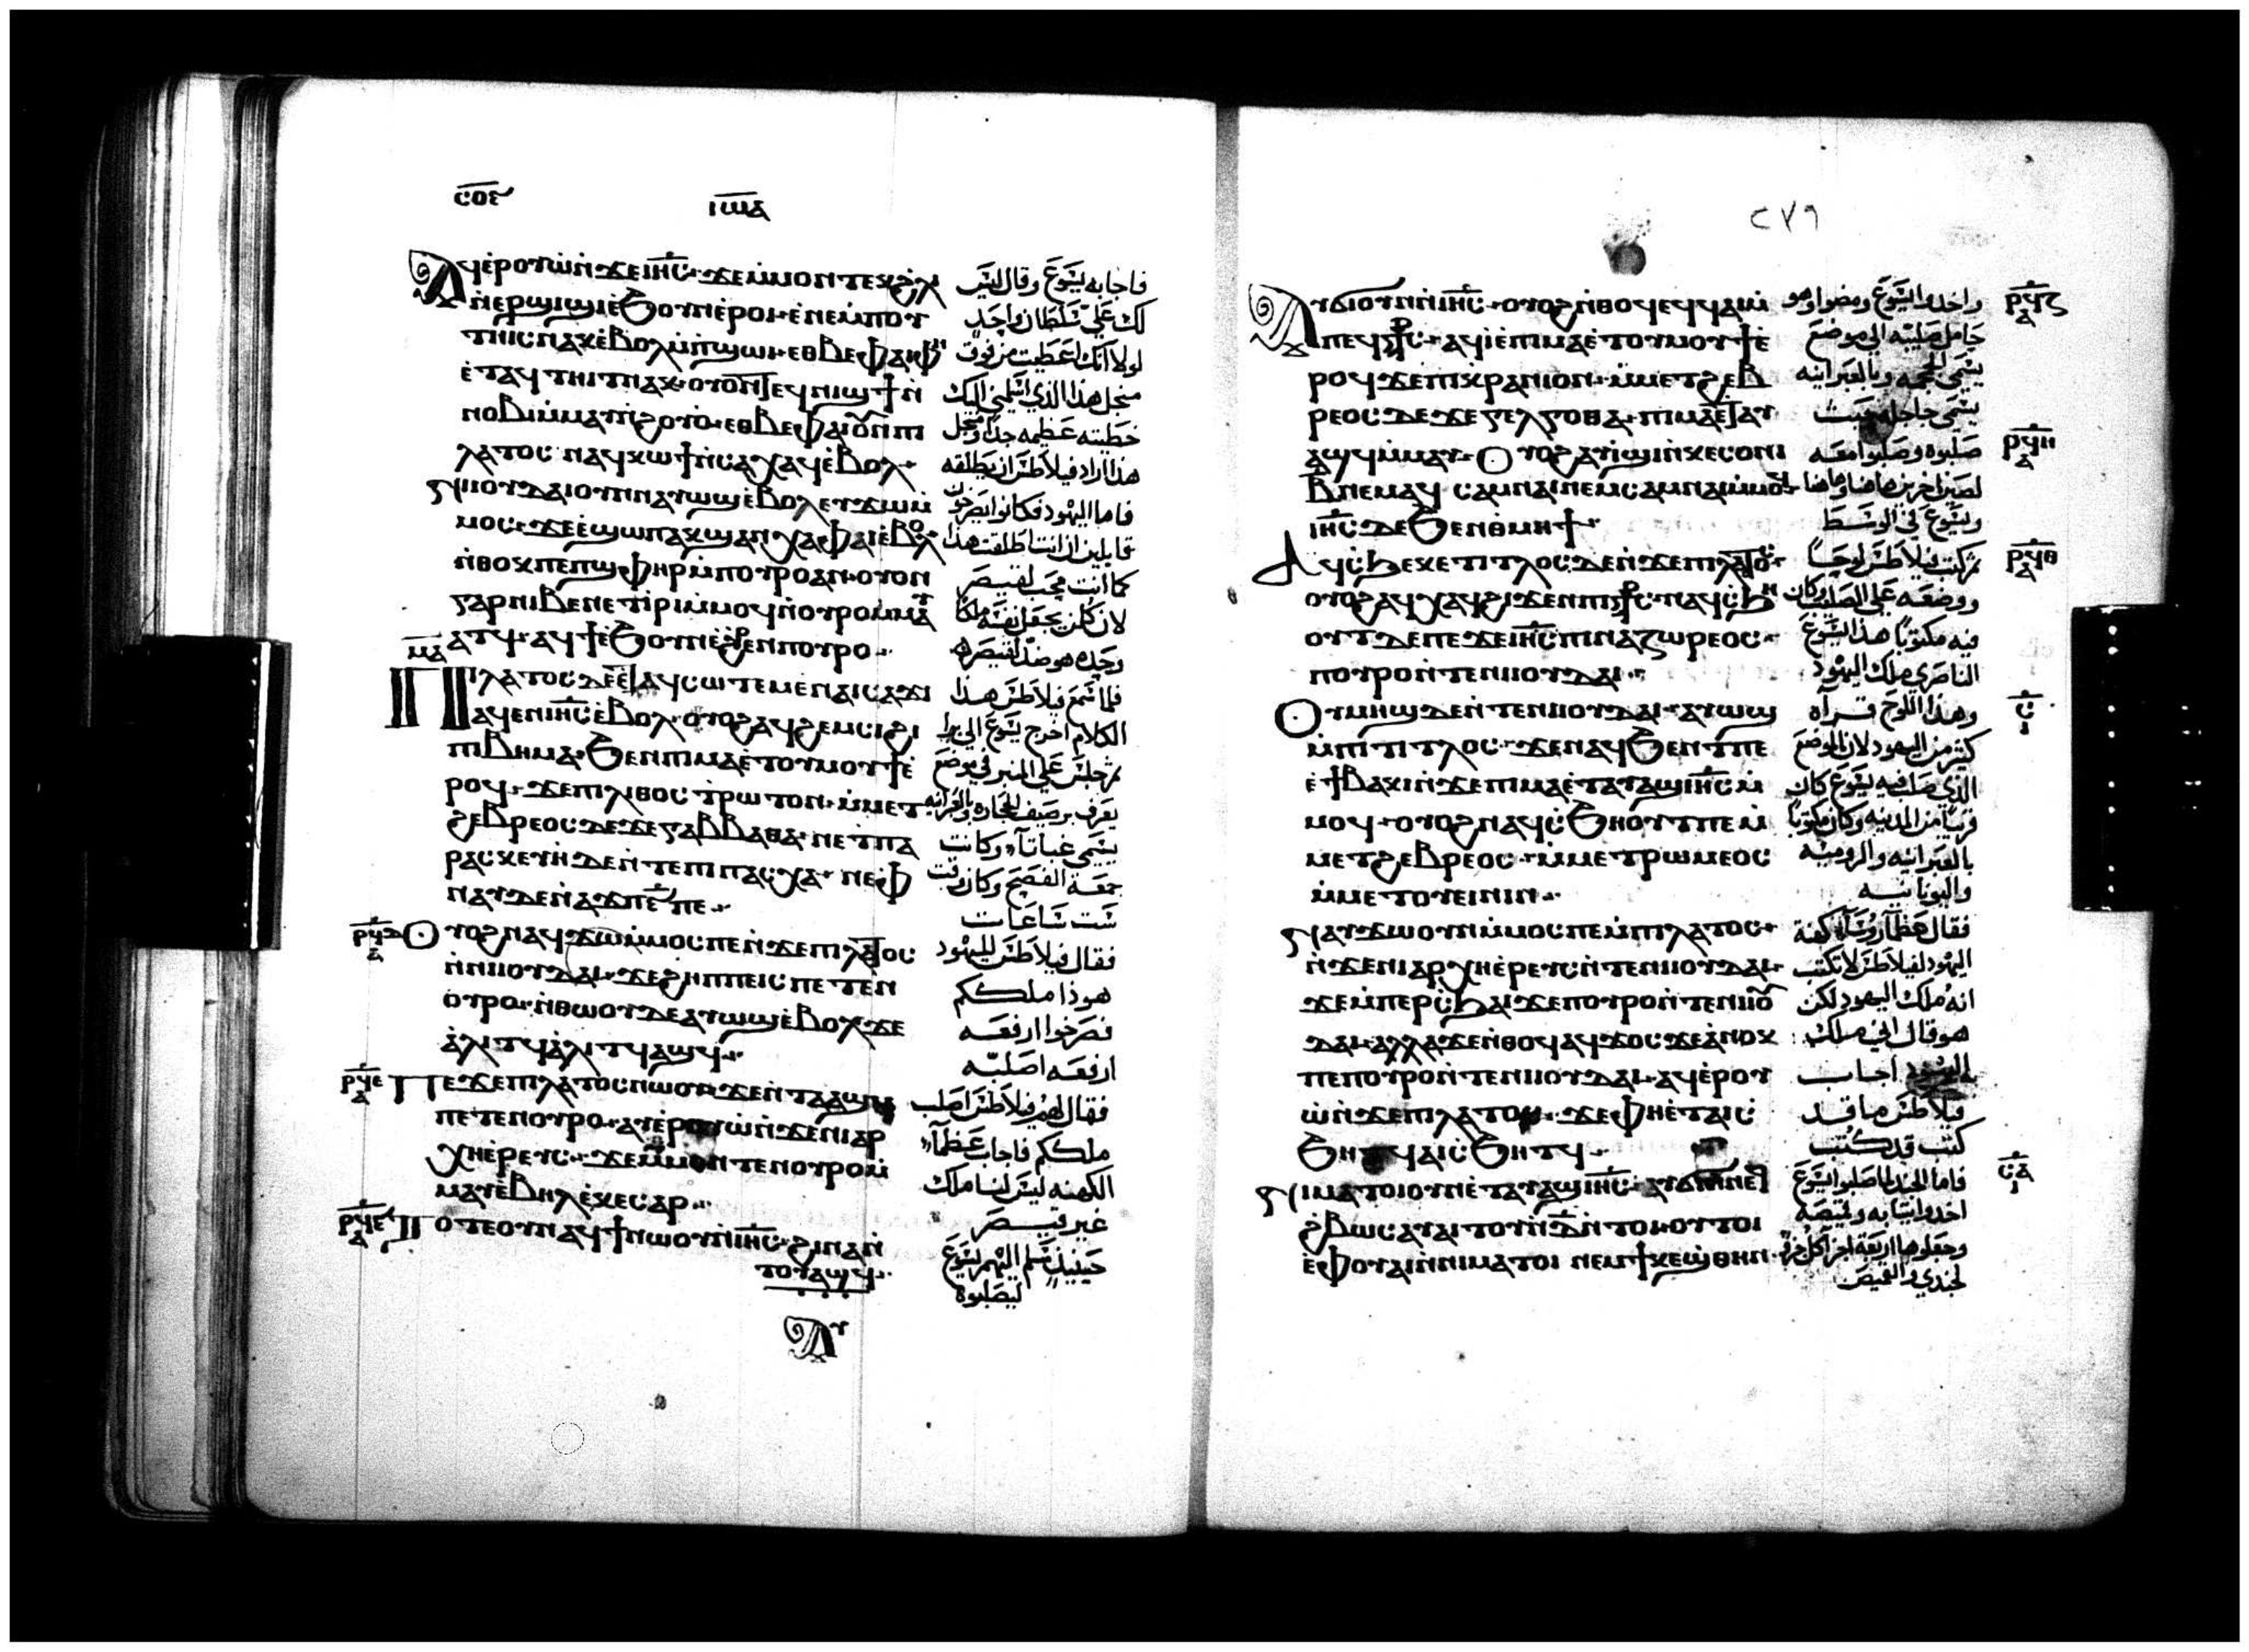 ⲥⲟⲉ
ⲓⲱⲁ
ⲁϥⲉⲣⲟⲩⲱⲛ̇ϫⲉⲓⲏⲥ· ϫⲉⲙ̇ⲙⲟⲛⲧⲉⲕϩⲗⲓ
ⲛ̇ⲉⲣϣⲓϣⲓⲉ̇ϧⲟⲩⲛⲉ̇ⲣⲟⲓ· ⲉ̇ⲛⲉⲙ̇ⲡⲟⲩ
ⲧⲏⲓⲥⲛⲁⲕⲉ̇ⲃⲟⲗⲙ̇ⲡϣⲱⲓ· ⲉⲑⲃⲉⲫⲁⲓⲫⲏ
ⲉ̇ⲧⲁϥⲧⲏⲓⲧⲛⲁⲕ· ⲟⲩⲟⲛⲧⲉϥⲛⲓϣϯⲛ̇
ⲛⲟⲃⲓⲙ̇ⲙⲁⲩⲛ̇ϩⲟⲩⲟ̇· ⲉⲑⲃⲉⲫⲁⲓⲟⲩⲛⲡⲓ
ⲗⲁⲧⲟⲥ ⲛⲁϥⲕⲱϯⲛ̇ⲥⲁⲭⲁϥⲉ̇ⲃⲟⲗ·
ⲛⲓⲓⲟⲩⲇⲁⲓⲟⲩⲛⲛⲁⲩⲱϣⲉ̇ⲃⲟⲗⲉⲩϫⲱⲙ̇
ⲙⲟⲥ· ϫⲉⲉ̇ϣⲱⲡⲁⲕϣⲁⲛⲭⲁⲫⲁⲓⲉ̇ⲃⲟⲗ
ⲛ̇ⲑⲟⲕⲡⲉⲡϣⲫⲏⲣⲙ̇ⲡⲟⲩⲣⲟⲁⲛ· ⲟⲩⲟⲛ
ⲅⲁⲣⲛⲓⲃⲉⲛⲉⲧⲓ̇ⲣⲓⲙ̇ⲙⲟϥⲛ̇ⲟⲩⲣⲟⲙ̇ⲙⲁ
ⲁⲧϥ· ⲁϥϯⲉ̇ϧⲟⲩⲛⲉ̇ϩⲣⲉⲛⲡⲟⲩⲣⲟ
ⲙⲁ
ⲡⲓⲗⲁⲧⲟⲥⲇⲉⲉ̇ⲧⲁϥⲥⲱⲧⲉⲙⲉ̇ⲛⲁⲓⲥⲁϫⲓ
ⲁϥⲉⲛⲓⲏⲥⲉ̇ⲃⲟⲗ· ⲟⲩⲟϩⲁϥϩⲉⲙⲥⲓϩⲓ
ⲡⲓⲃⲏⲙⲁ· ϧⲉⲛⲡⲓⲙⲁⲉ̇ⲧⲟⲩⲙⲟⲩϯⲉ̇
ⲣⲟϥ· ϫⲉⲡⲓⲗⲓⲑⲟⲥⲧ̇ⲣⲱⲧⲟⲛ· ⲙ̇ⲙⲉⲧ
ϩⲉⲃⲣⲉⲟⲥⲇⲉϫⲉⲅⲁⲃⲃⲁⲑⲁ· ⲛⲉⲧⲡⲁ
ⲣⲁⲥⲕⲉⲩⲏ̇ⲇⲉⲛ̇ⲧⲉⲡⲓⲡⲁⲥⲭⲁ· ⲛⲉⲫ
ⲛⲁⲩⲇⲉⲛ̇ⲁϫⲡⲉ̅ⲡⲉ
ⲣϥⲇ ⲁ
ⲟⲩⲟϩⲛⲁϥϫⲱⲙ̇ⲙⲟⲥⲡⲉⲛ̇ϫⲉⲡⲓⲗⲁⲧⲟⲥ
ⲛ̇ⲛⲓⲓⲟⲩⲇⲁⲓ· ϫⲉϩⲏⲡⲡⲉⲓⲥⲡⲉⲧⲉⲛ
ⲟ̇ⲩⲣⲟ· ⲛ̇ⲑⲱⲟⲩⲇⲉⲁⲩⲱϣⲉ̇ⲃⲟⲗϫⲉ
ⲁ̇ⲗⲓⲧϥⲁ̇ⲗⲓⲧϥⲁϣϥ
ⲣϥⲉ ⲁ
ⲡⲉϫⲉⲡⲓⲗⲁⲧⲟⲥⲛⲱⲟⲩ· ϫⲉⲛ̇ⲧⲁⲁϣ
ⲡⲉⲧⲉⲛⲟⲩⲣⲟ· ⲁⲩⲉ̇ⲣⲟⲩⲱⲛ̇ϫⲉⲛⲓⲁⲣ
ⲭⲏⲉ̇ⲣⲉⲩⲥ· ϫⲉⲙ̇ⲙⲟⲛⲧⲉⲛⲟⲩⲣⲟⲙ̇
ⲙⲁⲩⲉ̇ⲃⲏⲗⲉ̇ⲕⲉⲥⲁⲣ
ⲣϥⲋ ⲁ
ⲧⲟⲧⲉⲟⲩⲛⲁϥϯⲛⲱⲟⲩⲛ̇ⲓⲏⲥ· ϩⲓⲛⲁⲛ̇
ⲧⲟⲩⲁϣϥ
ⲁⲩ
فاجابه يسوع وقال ليس
لك علي سلطان واحد
لولا انك اعطيت من فوق
منجل هذا الذي اسلمني اليك
خطيته عظيمه جدا ومنجل
هذا اراد فيلاطس ان يطلقه
فاما اليهود فكانوا يصرخون
قايلين ان انت اطلقت هذا
فما انت محب لقيصر
لان كل من يجعل نفسه ملكا
وحده هو ضد لقيصر
فلما سمع فيلاطس هذا
الكلام اخرج يسوع الى برا
ثم جلس علي المنبر في موضع
يعرف برصيف الحجاره وبالعبرانيه
يسمى غباتا وكانت
جمعة الفصح وكان وقت
ست ساعات
فقال فيلاطس لليهود
هوذا ملككم
فصرخوا ارفعه
ارفعه اصلبه
فقال لهم فيلاطس اصلب
ملككم فاجاب عظما
الكهنه ليس لنا ملك
غير قيصر
حينيذ سلم اليهم يسوع
ليصلبوه
٢٧٦
ⲁⲩϭⲓⲟⲩⲛⲛ̇ⲓⲏⲥ· ⲟⲩⲟϩⲛ̇ⲑⲟϥⲉϥϥⲁⲓⲙ̇
ⲡⲉϥⲥⲧⲥ· ⲁϥⲓ̇ⲉ̇ⲡⲓⲙⲁⲉ̇ⲧⲟⲩⲙⲟⲩϯⲉ̇
ⲣⲟϥϫⲉⲡⲓⲕⲣⲁⲛⲓⲟⲛ· ⲙ̇ⲙⲉⲧϩⲉⲃ
ⲣⲉⲟⲥⲇⲉϫⲉⲅⲟⲗⲅⲟⲑⲁ· ⲡⲓⲙⲁⲉ̇ⲧⲁⲩ
ⲁϣϥⲙ̇ⲙⲁⲩ· ⲟⲩⲟϩⲁⲩⲓ̇ϣⲓⲛ̇ⲕⲉⲥⲟⲛⲓ
ⲃ̅ⲛⲉⲙⲁϥ ⲥⲁⲙⲛⲁⲓⲛⲉⲙⲥⲁⲙⲛⲁⲓⲙ̇ⲙⲟϥ
ⲓⲏⲥ ⲇⲉϧⲉⲛⲑⲙⲏϯ
ⲁϥⲥϧⲉⲕⲉⲧⲓⲧⲗⲟⲥⲇⲉⲛ̇ϫⲉⲡⲓⲗⲁⲧⲟⲥ
ⲟⲩⲟϩⲁϥⲭⲁϥϩⲓϫⲉⲛⲡⲓⲥⲧⲥ· ⲛⲁϥⲥϧⲏ
ⲟⲩⲧⲇⲉⲡⲉϫⲉⲓⲏⲥⲡⲓⲛⲁⲍⲱⲣⲉⲟⲥ·
ⲡⲟⲩⲣⲟⲛ̇ⲧⲉⲛⲓⲓⲟⲩⲇⲁⲓ
ⲟⲩⲙⲏϣⲇⲉⲛ̇ⲧⲉⲛⲓⲓⲟⲩⲇⲁⲓ· ⲁⲩⲱϣ
ⲙ̇ⲡⲓⲧⲓⲧⲗⲟⲥ· ϫⲉⲛⲁϥϧⲉⲛⲧⲡⲉ
ⲉ̇ϯⲃⲁⲕⲓⲛ̇ϫⲉⲡⲓⲙⲁⲉ̇ⲧⲁⲩⲁϣⲓⲏⲥⲙ̇
ⲙⲟϥ· ⲟⲩⲟϩⲛⲁϥⲥ̇ϧⲏⲟⲩⲧⲡⲉⲙ̇
ⲙⲉⲧϩⲉⲃⲣⲉⲟⲥ· ⲙ̇ⲙⲉⲧⲣⲱⲙⲉⲟⲥ
ⲙ̇ⲙⲉⲧⲟⲩⲉⲓⲛⲓⲛ
ⲛⲁⲩϫⲱⲟⲩⲛⲙ̇ⲙⲟⲥⲡⲉⲙ̇ⲡⲓⲗⲁⲧⲟⲥ·
ⲛ̇ϫⲉⲛⲓⲁⲣⲭⲏⲉ̇ⲣⲉⲩⲥⲛ̇ⲧⲉⲛⲓⲓⲟⲩⲇⲁⲓ·
ϫⲉⲙ̇ⲡⲉⲣⲥ̇ϧⲁⲓϫⲉⲡⲟⲩⲣⲟⲛ̇ⲧⲉⲛⲓⲓⲟⲩ
ⲇⲁⲓ· ⲁⲗⲗⲁϫⲉⲛ̇ⲑⲟϥⲁϥϫⲟⲥϫⲉⲁ̇ⲛⲟⲕ
ⲡⲉⲡⲟⲩⲣⲟⲛ̇ⲧⲉⲛⲓⲓⲟⲩⲇⲁⲓ· ⲁϥⲉ̇ⲣⲟⲩ
ⲱ̇ⲛ̇ϫⲉⲡⲓⲗⲁⲧⲟⲥ· ϫⲉⲫⲏⲉ̇ⲧⲁⲓⲥ̇
ϧⲏⲧϥⲁⲓⲥ̇ϧⲏⲧϥ
ⲛⲓⲙⲁⲧⲟⲓⲟⲩⲛⲉ̇ⲧⲁⲩⲁϣⲓⲏⲥ· ⲁⲩϭⲓⲛⲛⲉϥ
ϩ̇ⲃⲱⲥⲁⲩⲁⲓⲧⲟⲩⲛ̇ⲇ̅ⲛ̇ⲧⲟⲓ· ⲟⲩⲧⲟⲓ
ⲉ̇ⲫⲟⲩⲁⲓⲛ̇ⲛⲓⲙⲁⲧⲟⲓ ⲛⲉⲙϯⲕⲉϣ̇ⲑⲏⲛ
واخدوا ليسوع ومضوا وهو
حامل صليبه الي موضع
يسمى الجمجمه وبالعبرانيه
يسمى جاجله حيث
صلبوه وصلبوا معه
لصين اخرين هاهنا وهاهنا
ويسوع في الوسط
ثم كتب فيلاطس لوحا
ووضعه علي الصليب وكان
فيه مكتوبا هذا يسوع
الناصري ملك اليهود
وهذا اللوح قراه
كثير من اليهود لان الموضع
الذي صلب فيه يسوع كان
قريبا من المدينه وكان مكتوبا
بالعبرانيه والروميه
واليونانيه
فقال عظما روسا كهنة
اليهود لفيلاطس لا تكتب
انه ملك اليهود لكن
هو قال اني ملك
اليهود اجاب
فيلاطس ما قد
كتب قد كتب
فاما الجند لما صلبوا يسوع
اخدوا ثيابه وقميصه
وجعلوها اربعة اجزا كل جزو
لجندي والقميص
ⲣϥⲍ ⲁ
ⲣϥⲏ ⲁ
ⲣϥⲑ ⲁ
ⲥ ⲓ
ⲥⲁ ⲓ